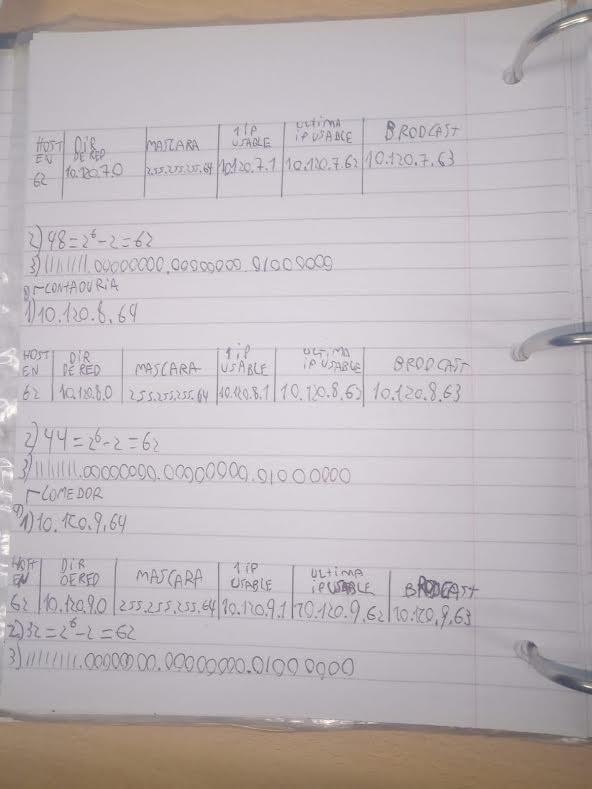 HOST EN | DIR DE RED | MASCARA | 1 IP USABLE | ULTIMA IP USABLE | BRODCAST
62 | 10.120.7.0 | 255.255.255.64 | 10.120.7.1 | 10.120.7.62 | 10.120.7.63
2) 48 = 2^6 - 2 = 62
3) 11111111.00000000.00000000.01000000
8) CONTADURIA
1) 10.120.8.64
HOST EN | DIR DE RED | MASCARA | 1 IP USABLE | ULTIMA IP USABLE | BRODCAST
62 | 10.120.8.0 | 255.255.255.64 | 10.120.8.1 | 10.120.8.62 | 10.120.8.63
2) 44 = 2^6 - 2 = 62
3) 11111111.00000000.00000000.01000000
9) COMEDOR
1) 10.120.9.64
HOST EN | DIR DE RED | MASCARA | 1 IP USABLE | ULTIMA IP USABLE | BRODCAST
62 | 10.120.9.0 | 255.255.255.64 | 10.120.9.1 | 10.120.9.62 | 10.120.9.63
2) 32 = 2^6 - 2 = 62
3) 11111111.00000000.00000000.01000000